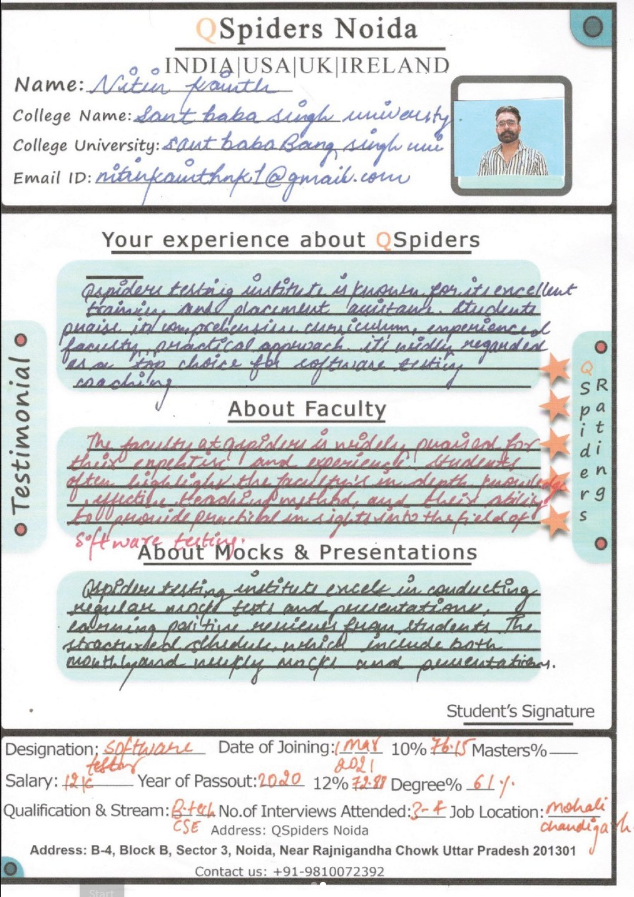 QSpiders Noida
INDIA|USA|UK|IRELAND
Name: Nitin Kainth
College Name: Sant baba singh university
College University: Sant baba Bang singh uni
Email ID: nitinkainthnk1@gmail.com
Your experience about QSpiders
Qspiders testing institute is known for its excellent
training and placement assistans. Students
praise its comprehensive curriculum, experienced
faculty, practical approach. it's widely regarded
as a top choice for software testing
coaching
Testimonial
QSpiders Ratings
About Faculty
The faculty at qspiders is widely praised for
their expertise and experience. Students
often highlight the faculty's in depth knowledge
effective teaching method and their ability
to provide practical insights into the field of
software testing.
About Mocks & Presentations
Qspiders testing institute excels in conducting
regular mock tests and presentations.
earning positive reviews from students. The
structured schedule, which include both
monthly and weekly mocks and presentations.
Student's Signature
Designation: Software tester Date of Joining: 1 MAY 2021 10% 76.15 Masters%
Salary: 12k Year of Passout: 2020 12% Degree% 61%
Qualification & Stream: B-tech CSE No.of Interviews Attended: 3-4 Job Location: Mohali chandigarh
Address: QSpiders Noida
Address: B-4, Block B, Sector 3, Noida, Near Rajnigandha Chowk Uttar Pradesh 201301
Contact us: +91-9810072392
Start